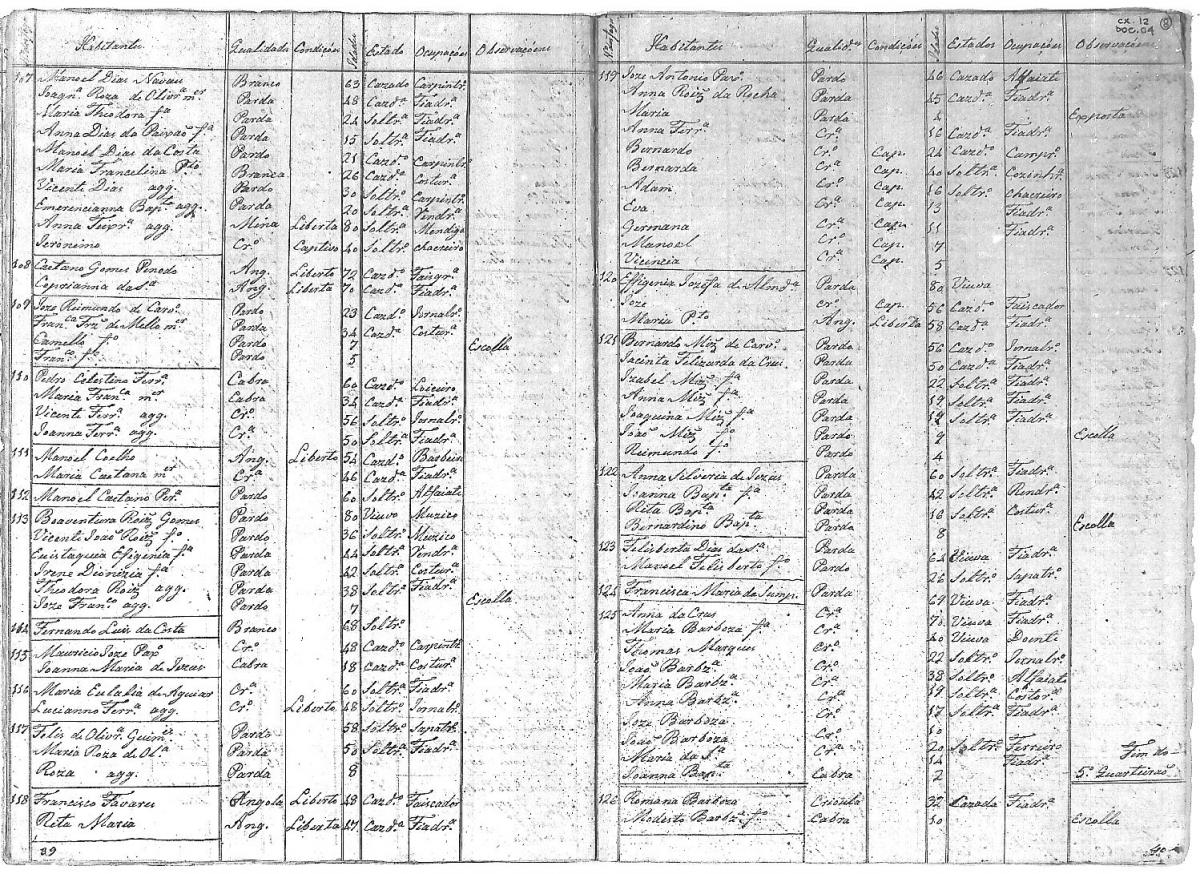 Habitantes Qualidade Condições Idades Estado Ocupações Observações
107 Manoel Dias Navaes Branco 63 Cazado Carpintrº
Joaqnª Roza de Olivrª mer Parda 48 Cazdª Fiadrª
Maria Theodora fª Parda 24 Soltrª Fiadrª
Anna Dias da Paixaõ fª Parda 15 Soltrª Fiadrª
Manoel Dias da Costa Pardo 21 Cazdº Carpintrº
Maria Francelina Branca 26 Cazdª Costurª
Vicente Dias agg. Pardo 30 Soltrº Carpintrº
Emerencianna Bapta agg. Parda 20 Soltrª Vendrª
Anna agg. Mina Liberta 80 Soltrª Mendiga
Jeronimo Crº Captivo 40 Soltrº chacreiro
108 Caetano Gomes Penedo Ang. Liberto 72 Cazdº
Ceprianna da Sª Ang. Liberta 70 Cazdª Fiadrª
109 Joze Reimundo de Caroº Pardo 23 Cazdº Jornalrº
Franca Frzº de Mello mer Parda 34 Cazdª Costurª
Camello fº Pardo 7 Escolla
Franco fº Pardo 5
110 Pedro Celestino Ferrª Cabra 60 Cazdº
Maria Franca mer Cabra 34 Cazdª Fiadrª
Vicente Ferrª agg. Crº 56 Soltrº Jornalrº
Joanna Ferrª agg. Crª 50 Soltrª Fiadrª
111 Manoel Coelho Ang. Liberto 54 Cazdº Barbeiro
Maria Caetana mer Crª 46 Cazdª Fiadrª
112 Manoel Caetano Perª Pardo 60 Soltrº Alfaiate
113 Boaventura Roiz Gomes Pardo 80 Viuvo Muzico
Vicente Joaõ Roiz fº Pardo 36 Soltrº Muzico
Euistaquia Efigenia fª Parda 44 Soltrª Vendrª
Irene Dionizia fª Parda 42 Soltrª Costurª
Theodora Roiz agg. Parda 38 Soltrª Fiadrª
Joze Franco agg. Pardo 7 Escolla
114 Fernando Luis da Costa Branco 68 Soltrº
115 Mauricio Joze Crº 48 Cazdº Carpintrº
Joanna Maria de Jezus Cabra 18 Cazdª Costurª
116 Maria Eulalia de Aguiar Crª 60 Soltrª Fiadrª
Lucianno Ferrª agg. Crº Liberto 48 Soltrº Jornalrº
117 Felis de Olivrª Guimes Pardo 58 Soltrº Sapatrº
Maria Roza de Olª Parda 50 Soltrª Fiadrª
Roza agg. Parda 8
118 Francisco Tavares Angola Liberto 48 Cazdº Faiscador
Rita Maria Ang. Liberta 47 Cazdª Fiadrª
39
cx. 12 doc. 04
8
Habitantes Qualides Condições Idades Estados Ocupações Observações
119 Joze Antonio Pardo 46 Cazado Alfaiate
Anna Roiz da Rocha Parda 45 Cazdª Fiadrª
Maria Parda 4 Exposta
Anna Ferrª Crª 16 Cazdª Fiadrª
Bernardo Crº Cap. 24 Cazdº
Bernarda Crª Cap. 40 Soltrª
Adam Crº Cap. 16 Soltrº chacreiro
Eva Crª Cap. 13 Fiadrª
Germana Crª Cap. 11 Fiadrª
Manoel Crº Cap. 7
Vicencia Crª Cap. 5
120 Effigenia Jozefa de Almdª Parda 80 Viuva
Joze Crº Cap. 56 Cazdº Faiscador
Maria Ang. Liberta 58 Cazdª Fiadrª
121 Bernardo Miz de Carvº Pardo 56 Cazdº Jornalrº
Jacinta Felizarda da Crus Parda 50 Cazdª Fiadrª
Izabel Miz fª Parda 22 Soltrª Fiadrª
Anna Miz fª Parda 19 Soltrª Fiadrª
Joaquina Miz fª Parda 14 Soltrª Fiadrª
Joaõ Miz fº Pardo 9 Escolla
Reimundo fº Pardo 4
122 Anna Silveria de Jezus Parda 60 Soltrª Fiadrª
Joanna Bapta fª Parda 42 Soltrª Rendrª
Rita Bapta Parda 16 Soltrª Costurª
Bernardino Bapta Pardo 8 Escolla
123 Felisberta Dias da Sª Parda 64 Viuva Fiadrª
Manoel Felisberto fº Pardo 26 Soltrº Sapatrº
124 Francisca Maria da Sump. Parda 69 Viuva Fiadrª
125 Anna da Crus Crª 70 Viuva Fiadrª
Maria Barboza fª Crª 40 Viuva Doente
Thomas Marques Crº 22 Soltrº Jornalrº
Joaõ Barbzª Crº 38 Soltrº Alfaiate
Maria Barbzª Crª 19 Soltrª Costurª
Anna Barbzª Crª 17 Soltrª Fiadrª
Joze Barboza Crº 10
Joaõ Barboza Crº 20 Soltrº Ferreiro
Maria da Sª Crª 14 Fiadrª Fim do
Joanna Bapta Cabra 2 5º Quarteiraõ
126 Romana Barboza Crioula 32 Cazada Fiadrª
Modesto Barbzª fº Cabra 10 Escolla
40